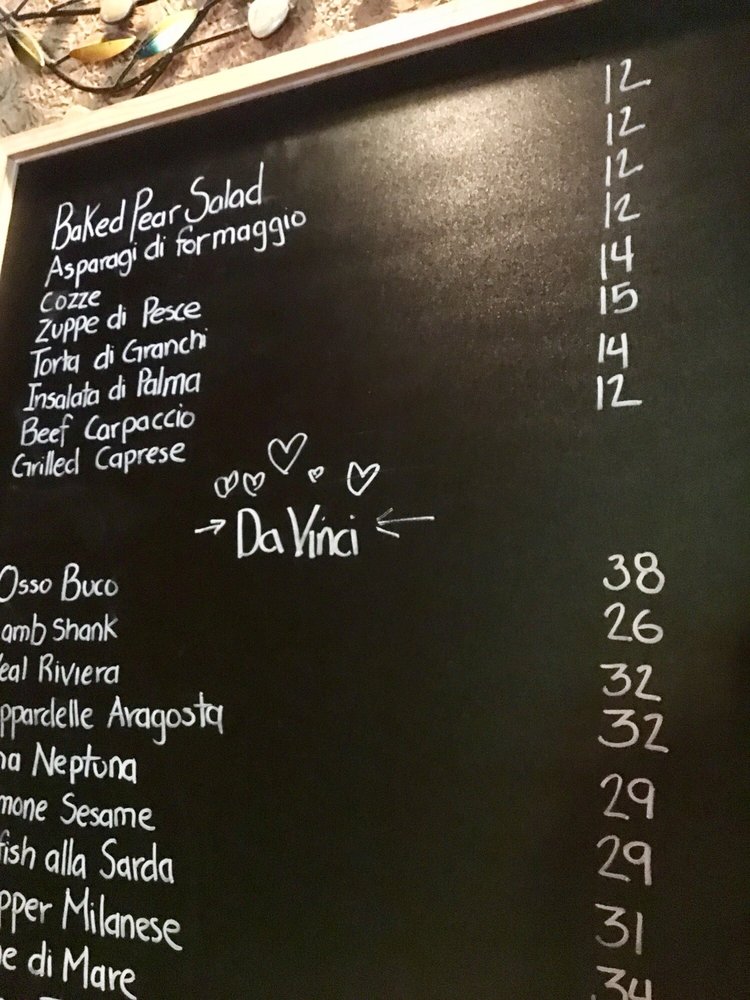 Baked Pear Salad 12
Asparagi di formaggio 12
Cozze 12
Zuppe di Pesce 12
Torta di Granchi 14
Insalata di Palma 15
Beef Carpaccio 14
Grilled Caprese 12
Da Vinci
Osso Buco 38
amb Shank 26
eal Riviera 32
ppardelle Aragosta 32
na Neptuna 29
mone Sesame 29
fish alla Sarda 31
pper Milanese 34
e di Mare